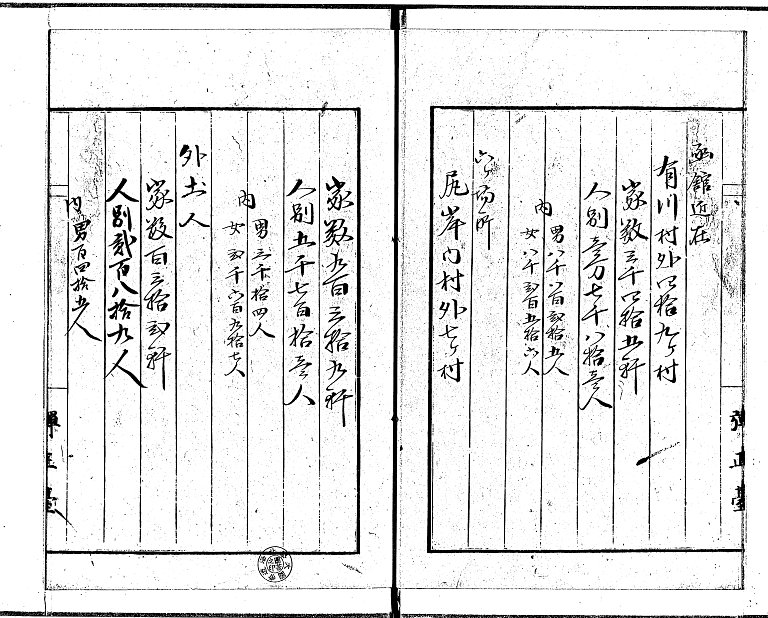 函館近在
有川村外四拾九ヶ村
家数三千四拾五軒
人別壱万七千八拾壱人
内
男八千八百弐拾五人
女八千弐百五拾六人
六ヶ場所
尻岸内村外七ヶ村
彈正臺
家数九百三拾九軒
人別五千七百拾壱人
内
男三千拾四人
女弐千六百九拾七人
外土人
家数百三拾弐軒
人別貳百八拾九人
内男百四拾五人
彈正臺